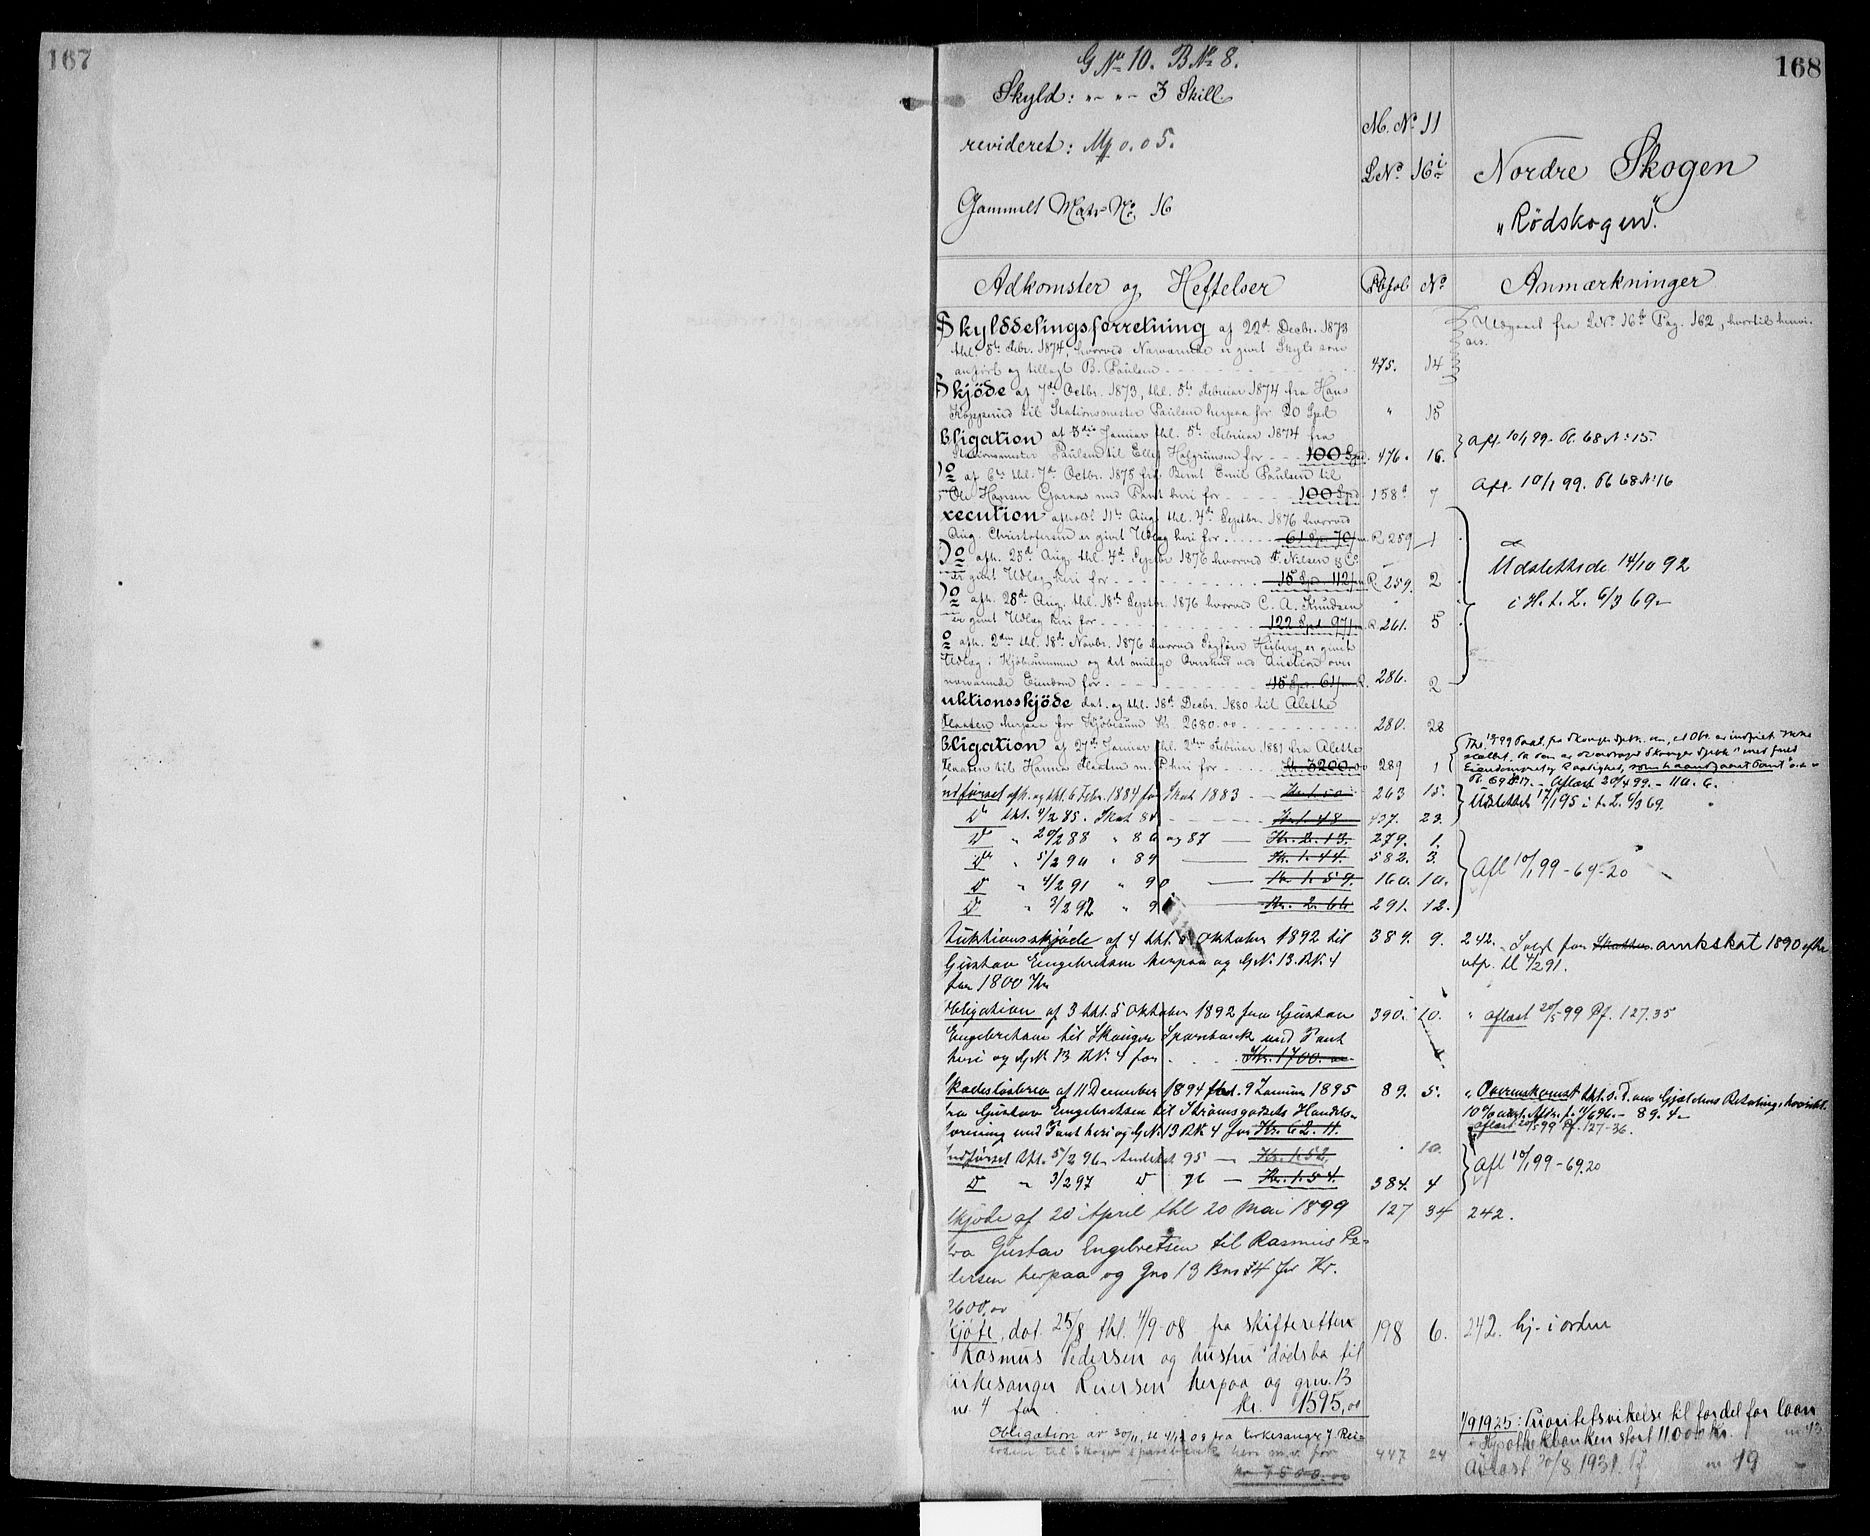 167
168
G No 10. B No 8.
Skyld: " - " - 3 Skill.
revideret: Mk 0.05.
Gammelt Matr. No 16
M. No 11
L No 16 i
Nordre Skogen
"Rödskogen".
Adkomster og Heftelser
Pbfol
No
Anmærkninger
Skylddelingsforretning af 22d Decbr. 1873
thl. 5te Febr. 1874, hvorved Nærværende er givet Skyld som
anført og tillagt B. Paulsen
475. 14
Udgaaet fra LNo 16 Pag. 162, hvortil henvi-
ses.
Skjöde af 7de Octbr. 1873, thl. 5te Februar 1874 fra Hans
Kopperud til Stationsmester Paulsen herpaa for 20 Spd
" 15
bligation af 3die Januar thl. 5te Februar 1874 fra
Stationsmester Paulsen til Ellef Halgrimsen for 100 Spd. 476. 16.
Afl. 10/1 99. Pb. 68 No 15.
Do af 6te thl. 7de Octbr. 1875 fra Bernt Emil Paulsen til
Ole Hansen Garaas med Pant heri for 100 Spd 158 7
Afl. 10/1 99. Pb 68 No 16
xecution afholdt 11te Aug. thl. 4de Septbr. 1876 hvorved
Aug. Christofersen er givet Udlæg heri for 61 Spd 70 R 259 1
Do afh. 25de Aug. thl. 4de Septbr 1876 hvorved F. Nilsen & Co
er givet Udlæg heri for 15 Spd 112 R. 259. 2
Udslettede 14/10 92
i H. t. L. 6/3 69.
Do afh. 28de Aug. thl. 18de Septbr. 1876 hvorved C. A. Knudsen
er givet Udlæg heri for 122 Spd 97 R 261. 5
Do afh. 2den thl. 18de Novbr. 1876 hvorved Sagfører Heiberg er givet
Udlæg i Kjøbesummen og det mulige Overskud ved Auction over
nærværende Eiendom for 15 Spd. 61 R. 286. 2
uktionsskjöde dat. og thl. 18de Decbr. 1880 til Alethe
Flaaten herpaa for Kjøbesum Kr. 2680.00 280. 28
bligation af 27de Januar thl. 2den Februar 1881 fra Alethe
Flaaten til Hannes Flaaten m. P. heri for Kr. 3200.00 289 1
Pb. 69 No 17. - Aflæst 20/4 99. - 110. 6.
Udførsel afh. og thl. 6 Febr. 1884 for Skat 1883 Kr. 1.50 263 15.
Udslettet 17/1 95 i t. L. 6/3 69.
Do thl. 4/2 85. Skat 84 Kr. 1.48 437. 23.
Do " 20/2 88 " 86 og 87 Kr. 2.13. 279. 1.
Do " 5/2 90 " 89 Kr. 1.44. 582. 3.
Do " 4/2 91 " 90 Kr. 1.59. 160. 10.
Do " 3/2 92 " 91 Kr. 2.66 291. 12.
Afl 10/1 99 - 69-20
Auktionsskjøde af 4 thl. 5 Oktober 1892 til 389. 9.
Gustav Engebretsen herpaa og GNo 13. BNo 4
for 1800 Kr
242. Solgt for Skatter amtskat 1890 efter
utp. tl 4/2 91.
Obligation af 3 thl. 5 Oktober 1892 fra Gustav 390. 10.
Engebretsen til Skouger Sparebank med Pant
heri og GNo 13 BNo 4 for Kr. 1700.00
" aflæst 20/5 99 Pf. 127.35
Skadesløsbrev af 11 December 1894 thl. 9 Januar 1895 89. 5.
fra Gustav Engebretsen til Strømsgodsets Handels-
forening med Pant heri og GNo 13 BNo 4 for Kr. 62.11.
" Overenskomst thl. s. D. om Gjældens Betaling
aflæst 20/5 99 Pf. 127-36.
Udførsel thl. 5/2 96 Amtskat 95 Kr. 1.52 10.
Do " 3/2 97 Do 96 Kr. 1.54. 384. 4
Afl 10/1 99 - 69.20
Skjøde af 20 April thl 20 Mai 1899 127 34 242.
fra Gustav Engebretsen til Rasmus Pe-
dersen herpaa og Gno 13 Bno 4 for Kr.
2600.00
kjøte, dat 25/8 thl. 4/9-08 fra skifteretten 198 6. 242. hj. i orden
Rasmus Pedersen og hustru dødsbo til
kirkesanger Reiersen herpaa og gnr. 13
no. 4 for kr. 1595,00
Obligation av 30/11, tl 4/12 08 fra kirkesanger J. Rei-
ersen til Skoger sparebank heri m.v. for 447 24
kr 7500.00
1/9 1925: Prioritetsvikelse til fordel for laan
i Hypotekbanken stort 11000 kr.
Avlæst 20/8 1931. 19